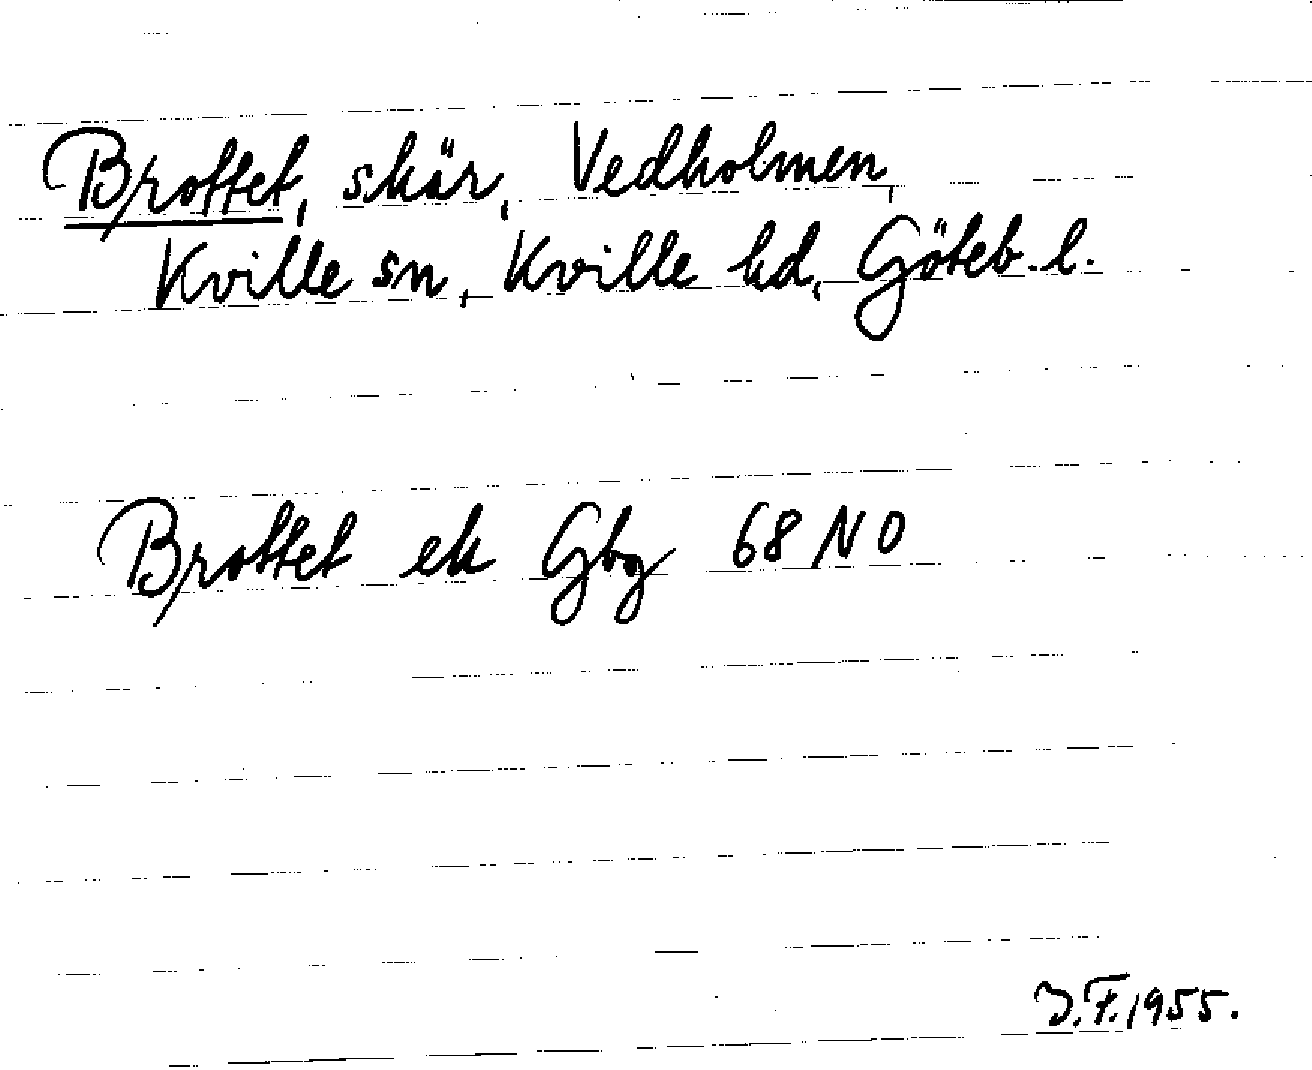 Brottet, skär, Vedholmen,
Kville sn, Kville hd, Göteb. l.
Brottet ek Gbg 68 NO
J.F. 1955.